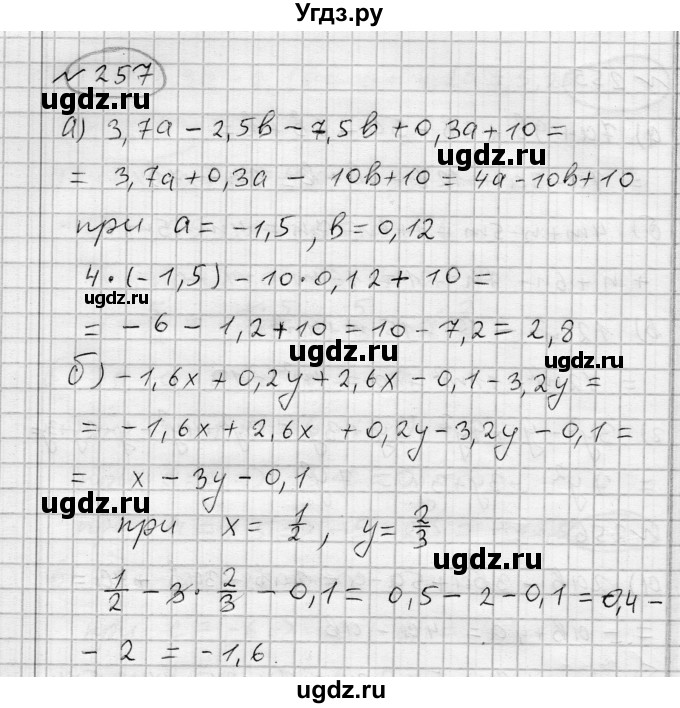 Угдз.ру
№257
ugdz.ru
а) 3,7a - 2,5b - 7,5b + 0,3a + 10 =
ugdz.ru
= 3,7a + 0,3a - 10b + 10 = 4a - 10b + 10
при a = -1,5, b = 0,12
4 · (-1,5) - 10 · 0,12 + 10 =
ugdz.ru
= - 6 - 1,2 + 10 = 10 - 7,2 = 2,8
ugdz.ru
ugdz.ru
б) - 1,6x + 0,2y + 2,6x - 0,1 - 3,2y =
= - 1,6x + 2,6x + 0,2y - 3,2y - 0,1 =
ugdz.ru
= x - 3y - 0,1
ugdz.ru
при x = 1/2, y = 2/3
ugdz.ru
1/2 - 3 · 2/3 - 0,1 = 0,5 - 2 - 0,1 = 0,4 -
- 2 = -1,6.
ugdz.ru
ugdz.ru